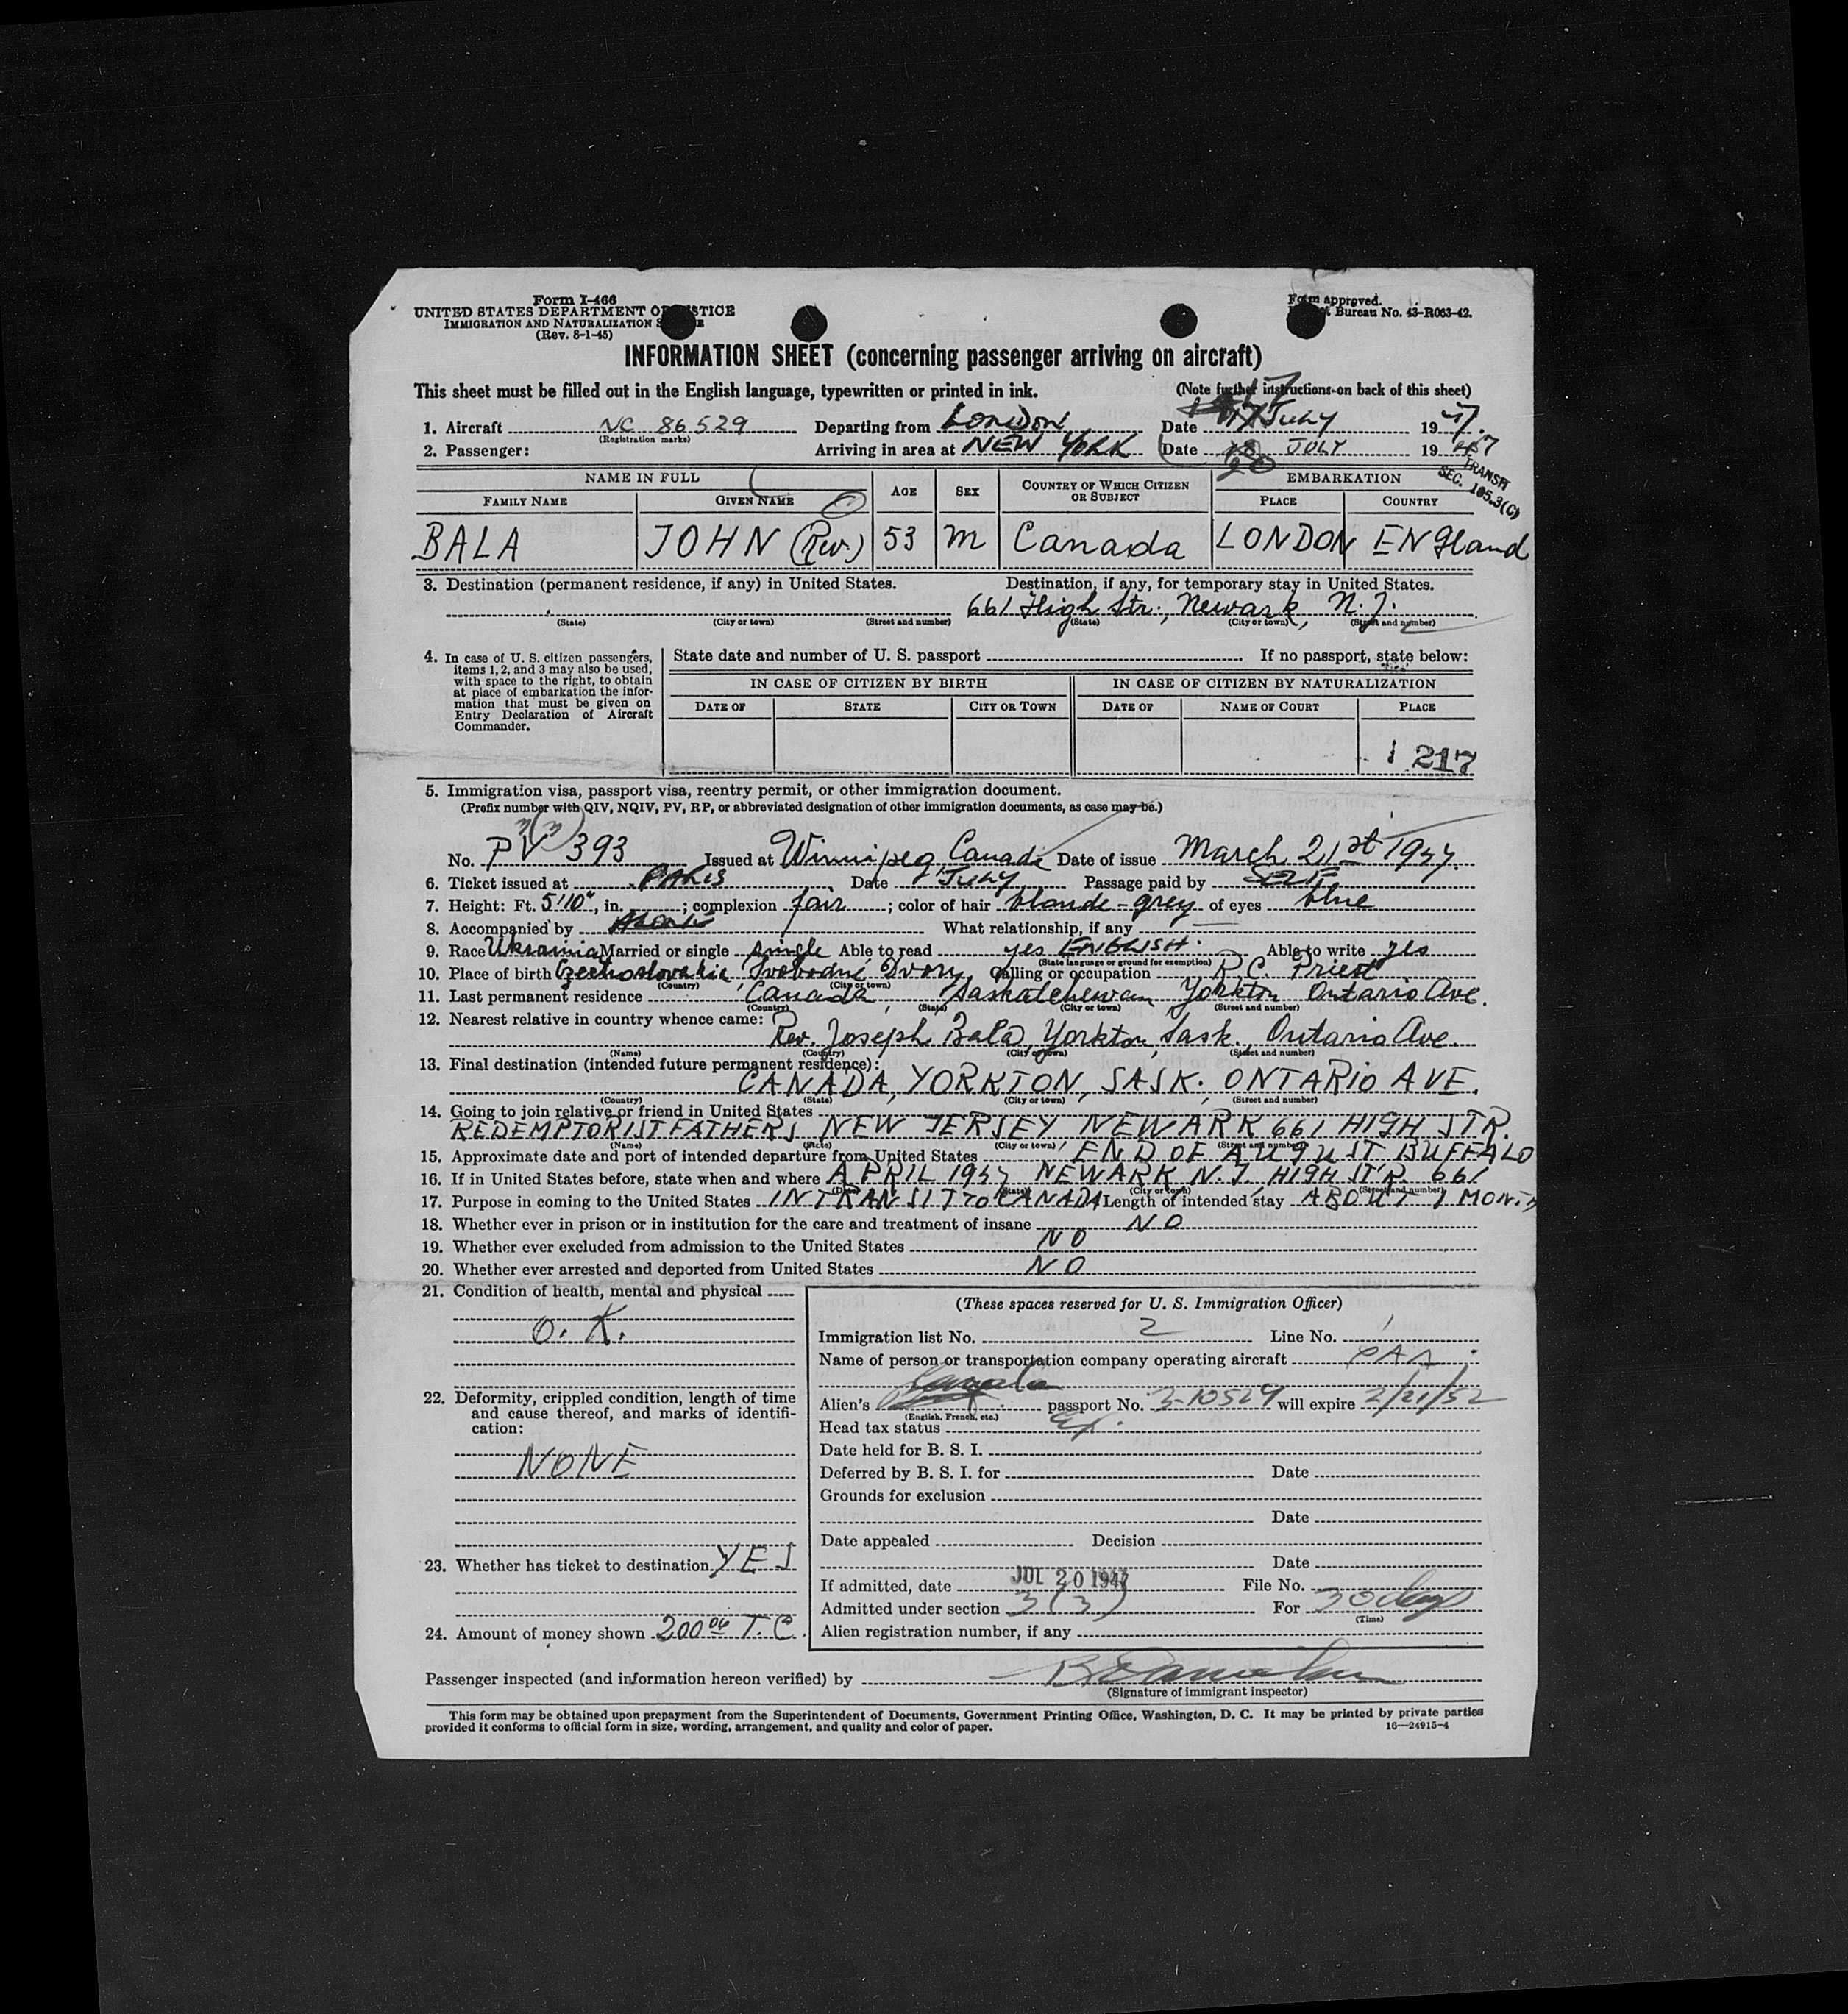 Form I-466
UNITED STATES DEPARTMENT OF JUSTICE
IMMIGRATION AND NATURALIZATION
(Rev. 8-1-45)
Form approved.
Bureau No. 43-R063-42.
INFORMATION SHEET (concerning passenger arriving on aircraft)
This sheet must be filled out in the English language, typewritten or printed in ink. (Note further instructions on back of this sheet)
1. Aircraft NC 86529 Departing from LONDON Date 17 July 1947.
(Registration marks)
2. Passenger: Arriving in area at NEW YORK Date 20 JULY 1947
TRANSIT
SEC. 105.3(C)
NAME IN FULL AGE SEX COUNTRY OF WHICH CITIZEN OR SUBJECT EMBARKATION
FAMILY NAME GIVEN NAME PLACE COUNTRY
BALA JOHN (Rev.) 53 M Canada LONDON ENGland
3. Destination (permanent residence, if any) in United States. Destination, if any, for temporary stay in United States.
661 High Str., Newark, N.J.
(State) (City or town) (Street and number) (State) (City or town) (Street and number)
4. In case of U. S. citizen passengers, items 1, 2, and 3 may also be used, with space to the right, to obtain at place of embarkation the information that must be given on Entry Declaration of Aircraft Commander.
State date and number of U. S. passport If no passport, state below:
IN CASE OF CITIZEN BY BIRTH IN CASE OF CITIZEN BY NATURALIZATION
DATE OF STATE CITY OR TOWN DATE OF NAME OF COURT PLACE
1 217
5. Immigration visa, passport visa, reentry permit, or other immigration document.
(Prefix number with QIV, NQIV, PV, RP, or abbreviated designation of other immigration documents, as case may be.)
No. PV 393 Issued at Winnipeg, Canada Date of issue March 21st 1947.
6. Ticket issued at PARIS Date July Passage paid by SELF
7. Height: Ft. 5'10", in. ; complexion fair ; color of hair blonde-grey of eyes blue
8. Accompanied by What relationship, if any
9. Race Ukrainia Married or single single Able to read yes ENGLISH. Able to write yes
(State language or ground for exemption)
10. Place of birth Czechoslovakia, Svobodne Dvory, Calling or occupation R.C. Priest
(Country) (City or town)
11. Last permanent residence Canada, Saskatchewan Yorkton Ontario Ave.
(Country) (State) (City or town) (Street and number)
12. Nearest relative in country whence came: Rev. Joseph Bala, Yorkton, Sask., Ontario Ave.
(Name) (Country) (City or town) (Street and number)
13. Final destination (intended future permanent residence):
CANADA, YORKTON, SASK. ONTARIO AVE.
(Country) (State) (City or town) (Street and number)
14. Going to join relative or friend in United States
REDEMPTORIST FATHERS NEW JERSEY NEWARK 661 HIGH STR.
(Name) (State) (City or town) (Street and number)
15. Approximate date and port of intended departure from United States END OF AUGUST BUFFALO
16. If in United States before, state when and where APRIL 1947 NEWARK N.J. HIGH STR. 661
(Date) (State) (City or town) (Street and number)
17. Purpose in coming to the United States IN TRANSIT TO CANADA Length of intended stay ABOUT 1 MONTH
18. Whether ever in prison or in institution for the care and treatment of insane NO
19. Whether ever excluded from admission to the United States NO
20. Whether ever arrested and deported from United States NO
21. Condition of health, mental and physical
O. K.
22. Deformity, crippled condition, length of time and cause thereof, and marks of identification:
NONE
23. Whether has ticket to destination YES
24. Amount of money shown 200.00 T.C.
(These spaces reserved for U. S. Immigration Officer)
Immigration list No. 2 Line No. 1
Name of person or transportation company operating aircraft PAA
Canada
Alien's passport No. 3-10529 will expire 2/21/52
(English, French, etc.)
Head tax status Ex.
Date held for B. S. I.
Deferred by B. S. I. for Date
Grounds for exclusion
Date
Date appealed Decision
Date
If admitted, date JUL 20 1947 File No.
Admitted under section 3(3) For 30 days
(Time)
Alien registration number, if any
Passenger inspected (and information hereon verified) by
(Signature of immigrant inspector)
This form may be obtained upon prepayment from the Superintendent of Documents, Government Printing Office, Washington, D. C. It may be printed by private parties
provided it conforms to official form in size, wording, arrangement, and quality and color of paper.
16—24915-4